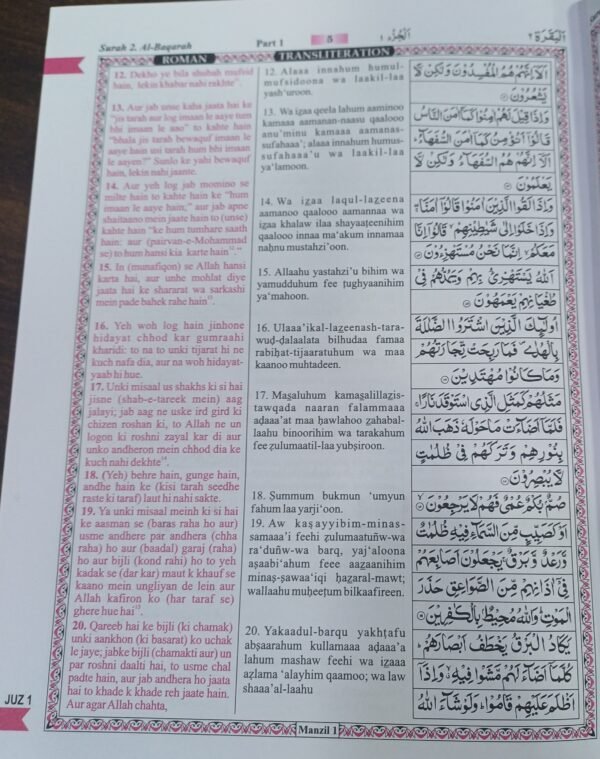 Surah 2. Al-Baqarah Part 1 5 اَلْجُزْء ١ اَلْبَقَرَة ٢
ROMAN TRANSLITERATION
12. Dekho ye bila shubah mufsid
hain, lekin khabar nahi rakhte".
13. Aur jab unse kaha jaata hai ke
"jis tarah aur log imaan le aaye tum
bhi imaan le aao" to kahte hain
"bhala jis tarah bewaquf imaan le
aaye hain usi tarah hum bhi imaan
le aayen?" Sunlo ke yahi bewaquf
hain, lekin nahi jaante.
14. Aur yeh log jab momino se
milte hain to kahte hain ke "hum
imaan le aaye hain;" aur jab apne
shaitaano mein jaate hain to (unse)
kahte hain "ke hum tumhare saath
hain: aur (pairvan-e-Mohammad
se) to hum hansi kia karte hain".
15. In (munafiqon) se Allah hansi
karta hai, aur unhe mohlat diye
jaata hai ke shararat wa sarkashi
mein pade bahek rahe hain".
16. Yeh woh log hain jinhone
hidayat chhod kar gumraahi
kharidi: to na to unki tijarat hi ne
kuch nafa dia, aur na woh hidayat-
yaab hi hue.
17. Unki misaal us shakhs ki si hai
jisne (shab-e-tareek mein) aag
jalayi; jab aag ne uske ird gird ki
chizen roshan ki, to Allah ne un
logon ki roshni zayal kar di aur
unko andheron mein chhod dia ke
kuch nahi dekhte".
18. (Yeh) behre hain, gunge hain,
andhe hain ke (kisi tarah seedhe
raste ki taraf) laut hi nahi sakte.
19. Ya unki misaal meinh ki si hai
ke aasman se (baras raha ho aur)
usme andhere par andhera (chha
raha) ho aur (baadal) garaj (raha)
ho aur bijli (kond rahi) ho to yeh
kadak se (dar kar) maut k khauf se
kaano mein ungliyan de lein aur
Allah kafiron ko (har taraf se)
ghere hue hai".
20. Qareeb hai ke bijli (ki chamak)
unki aankhon (ki basarat) ko uchak
le jaye; jabke bijli (chamakti aur) un
par roshni daalti hai, to usme chal
padte hain, aur jab andhera ho jaata
hai to khade k khade reh jaate hain.
Aur agar Allah chahta,
12. Alaaa innahum humul-
mufsidoona wa laakil-laa
yash'uroon.
13. Wa izaa qeela lahum aaminoo
kamaaa aamanan-naasu qaalooo
anu'minu kamaaa aamanas-
sufahaaa'; alaaa innahum humus-
sufahaaa'u wa laakil-laa
ya'lamoon.
14. Wa izaa laqul-lazeena
aamanoo qaalooo aamannaa wa
izaa khalaw ilaa shayaateenihim
qaalooo innaa ma'akum innamaa
naḥnu mustahzi'oon.
15. Allaahu yastahzi'u bihim wa
yamudduhum fee ṭughyaanihim
ya'mahoon.
16. Ulaaa'ikal-lazeenash-tara-
wuḍ-ḍalaalata bilhudaa famaa
rabiḥat-tijaaratuhum wa maa
kaanoo muhtadeen.
17. Maṣaluhum kamaṣalillazis-
tawqada naaran falammaaa
aḍaaa'at maa ḥawlahoo zahabal-
laahu binoorihim wa tarakahum
fee ẓulumaatil-laa yubṣiroon.
18. Ṣummum bukmun 'umyun
fahum laa yarji'oon.
19. Aw kaṣayyibim-minas-
samaaa'i feehi ẓulumaatuñw-wa
ra'duñw-wa barq, yaj'aloona
aṣaabi'ahum feee aazaanihim
minaṣ-ṣawaa'iqi ḥazaral-mawt;
wallaahu muḥeeṭum bilkaafireen.
20. Yakaadul-barqu yakhṭafu
abṣaarahum kullamaaa aḍaaa'a
lahum mashaw feehi wa izaaa
aẓlama 'alayhim qaamoo; wa law
shaaa'al-laahu
اَلَاۤ اِنَّهُمْ هُمُ الْمُفْسِدُوْنَ وَلٰكِنْ لَّا
يَشْعُرُوْنَ
وَاِذَا قِيْلَ لَهُمْ اٰمِنُوْا كَمَاۤ اٰمَنَ النَّاسُ
قَالُوْۤا اَنُؤْمِنُ كَمَاۤ اٰمَنَ السُّفَهَآءُؕ
اَلَاۤ اِنَّهُمْ هُمُ السُّفَهَآءُ وَلٰكِنْ لَّا
يَعْلَمُوْنَ
وَاِذَا لَقُوا الَّذِيْنَ اٰمَنُوْا قَالُوْۤا اٰمَنَّاۖۚ
وَاِذَا خَلَوْا اِلٰى شَيٰطِيْنِهِمْۙ قَالُوْۤا اِنَّا
مَعَكُمْۙ اِنَّمَا نَحْنُ مُسْتَهْزِءُوْنَ
اَللّٰهُ يَسْتَهْزِئُ بِهِمْ وَيَمُدُّهُمْ فِيْ
طُغْيَانِهِمْ يَعْمَهُوْنَ
اُولٰٓئِكَ الَّذِيْنَ اشْتَرَوُا الضَّلٰلَةَ
بِالْهُدٰى فَمَا رَبِحَتْ تِّجَارَتُهُمْ
وَمَا كَانُوْا مُهْتَدِيْنَ
مَثَلُهُمْ كَمَثَلِ الَّذِى اسْتَوْقَدَ نَارًاۚ
فَلَمَّاۤ اَضَآءَتْ مَا حَوْلَهٗ ذَهَبَ اللّٰهُ
بِنُوْرِهِمْ وَتَرَكَهُمْ فِيْ ظُلُمٰتٍ
لَّا يُبْصِرُوْنَ
صُمٌّۢ بُكْمٌ عُمْيٌ فَهُمْ لَا يَرْجِعُوْنَ
اَوْ كَصَيِّبٍ مِّنَ السَّمَآءِ فِيْهِ ظُلُمٰتٌ
وَّرَعْدٌ وَّبَرْقٌۚ يَجْعَلُوْنَ اَصَابِعَهُمْ
فِيْۤ اٰذَانِهِمْ مِّنَ الصَّوَاعِقِ حَذَرَ
الْمَوْتِؕ وَاللّٰهُ مُحِيْطٌۢ بِالْكٰفِرِيْنَ
يَكَادُ الْبَرْقُ يَخْطَفُ اَبْصَارَهُمْؕ
كُلَّمَاۤ اَضَآءَ لَهُمْ مَّشَوْا فِيْهِۙ وَاِذَاۤ
اَظْلَمَ عَلَيْهِمْ قَامُوْاؕ وَلَوْ شَآءَ اللّٰهُ
JUZ 1
Manzil 1